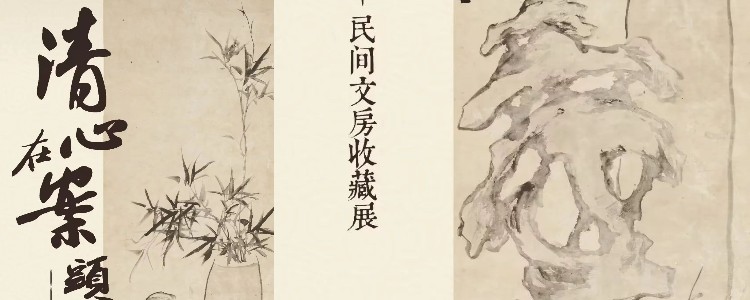 清心在案
民间文房收藏展